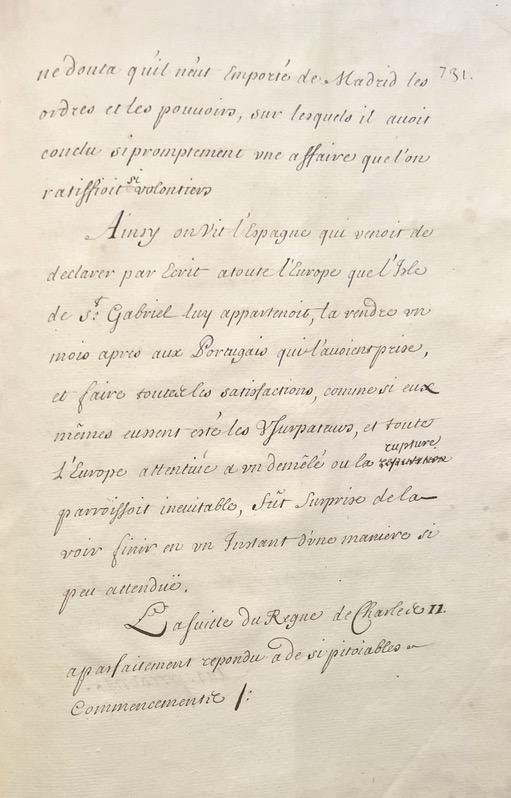 731.
ne douta qu'il n'eut Emporté de Madrid les
ordres et les pouvoirs, sur lesquels il avoit
conclu si promptement vne affaire que l'on
ratiffioit si volontiers
Ainsy on Vit l'Espagne qui venoit de
declarer par Ecrit a toute l'Europe que l'Isle
de St. Gabriel luy appartenoit, la rendre vn
mois apres aux Portugais qui l'avoient prise,
et faire toutes les satisfactions, comme si eux
mêmes eussent esté les Vsurpateurs, et toute
L'Europe attentive a vn demêlé ou la rupture
parroissoit ineuitable, fût Surprise de la
voir finir en vn Instant d'vne maniere si
peu attenduë.
La suitte du Regne de Charles II.
a parfaitement repondu a de si pitoiables
Commencements /: